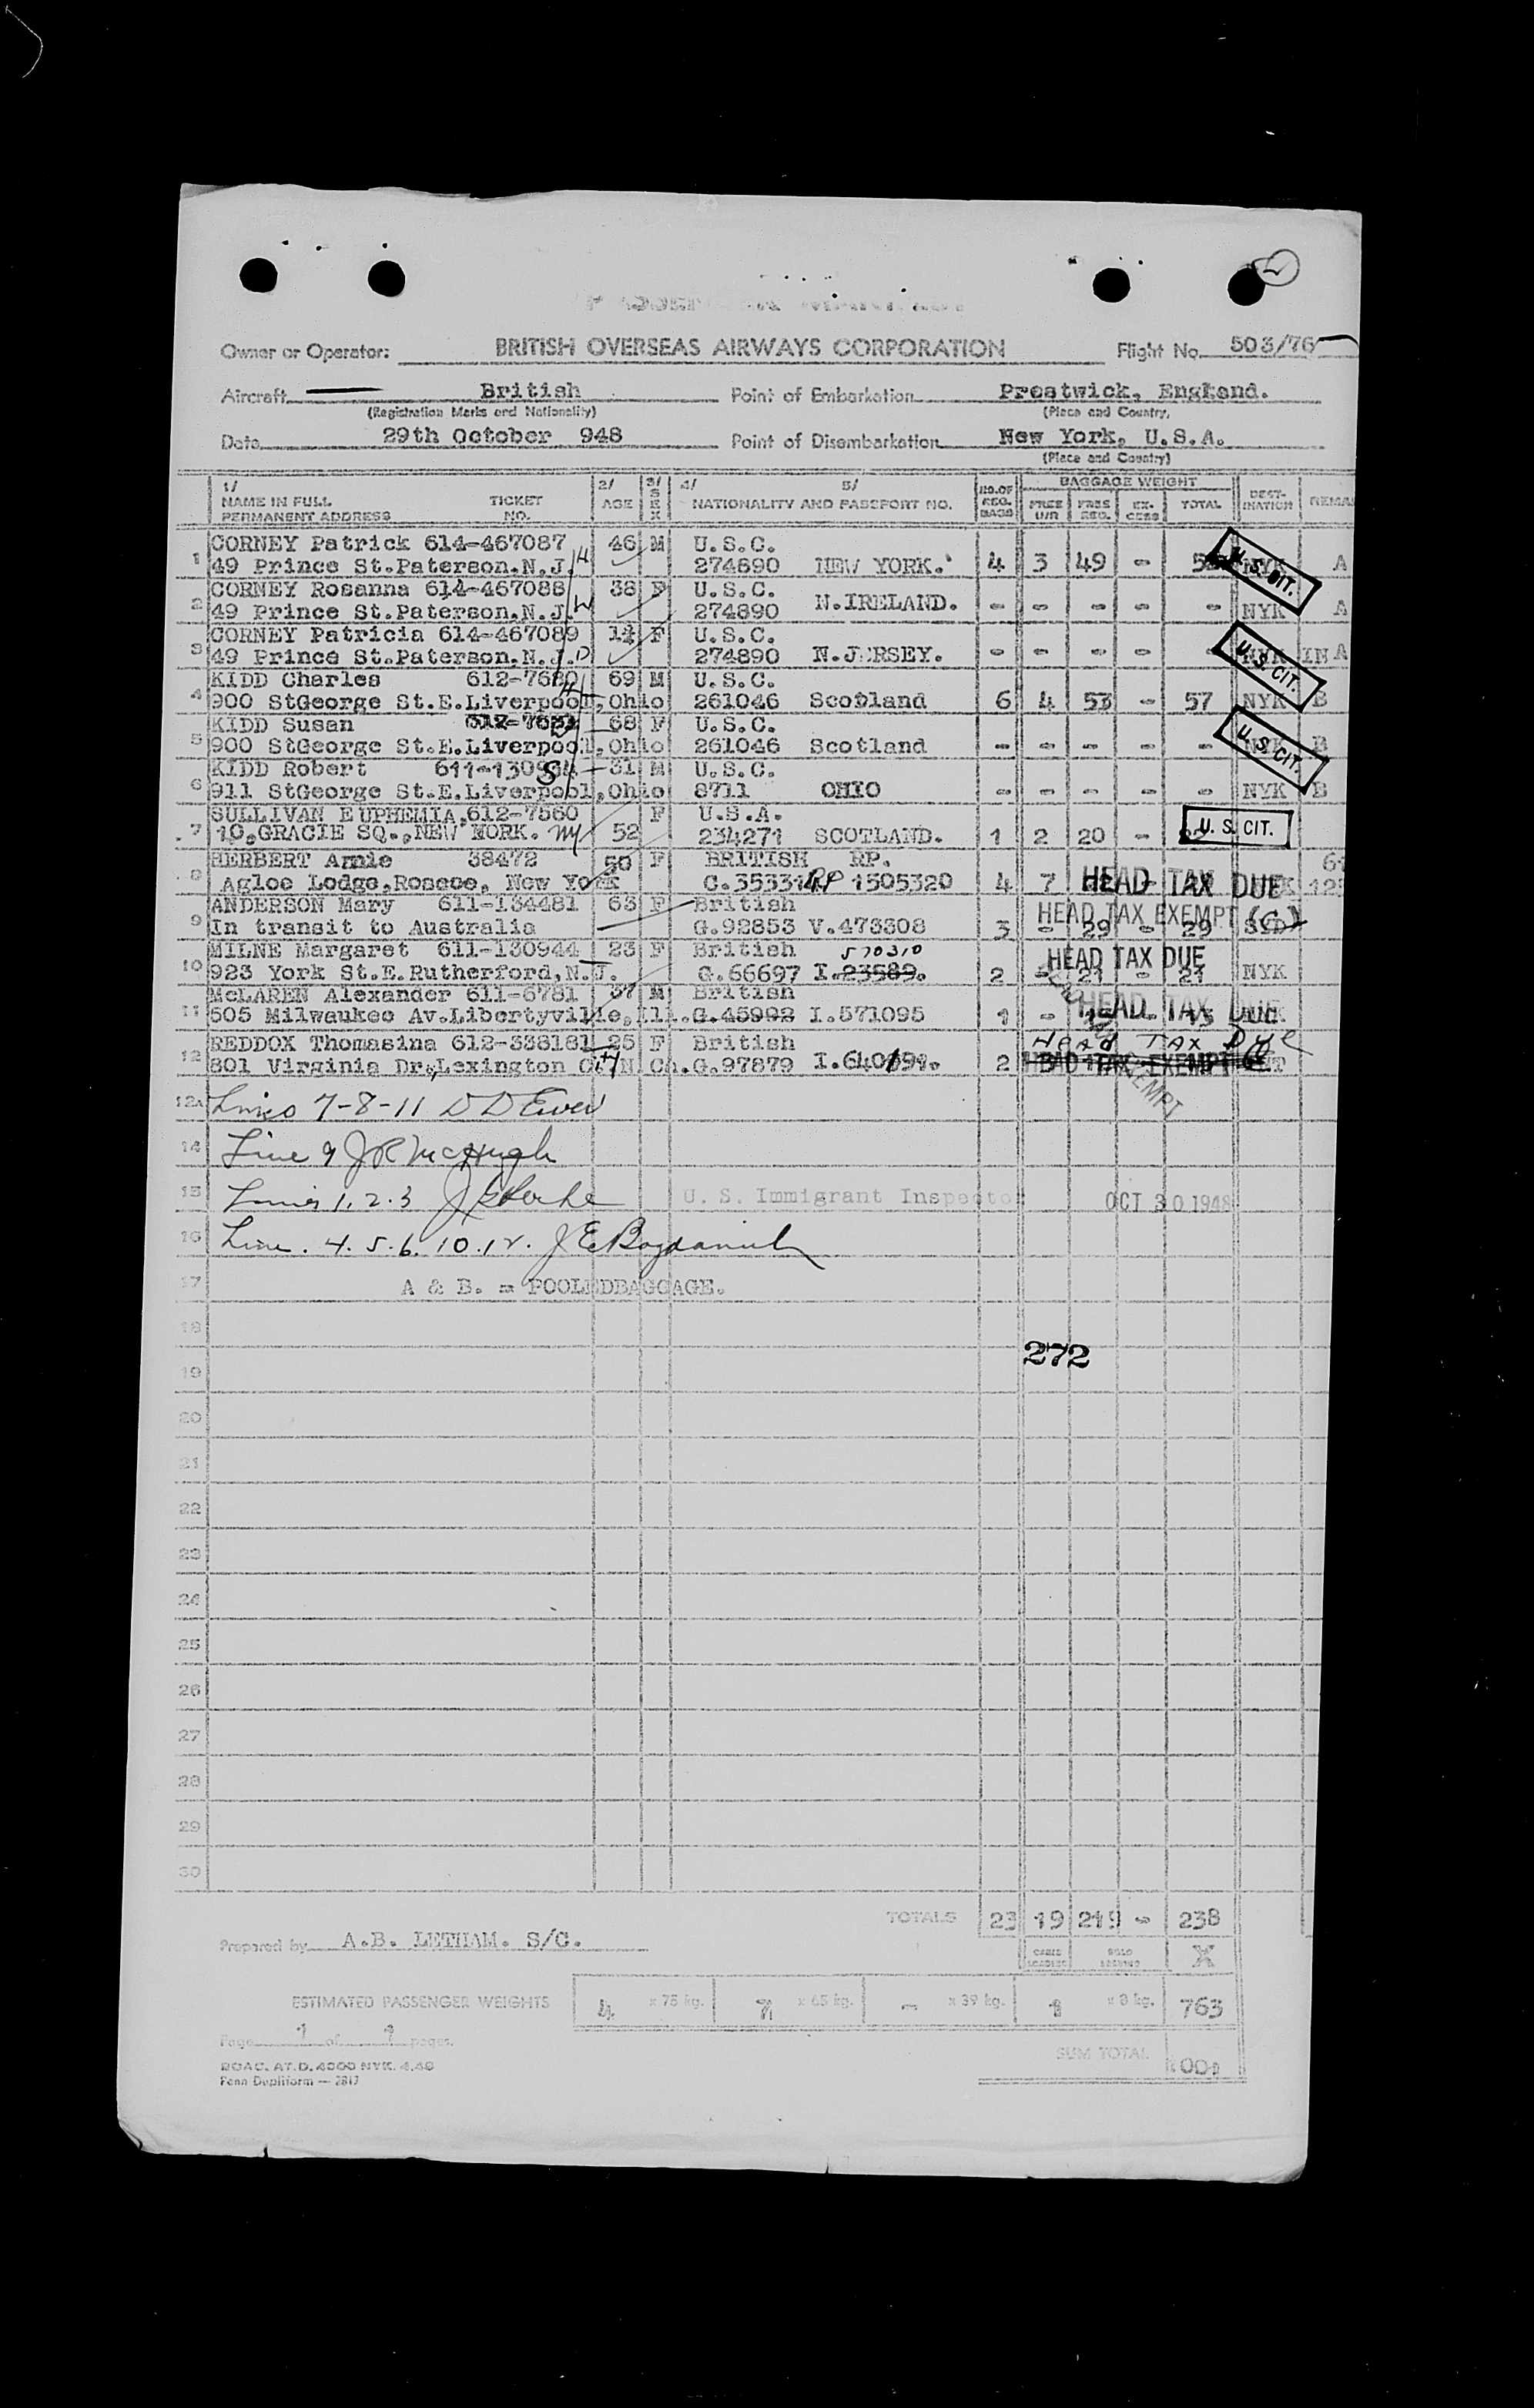 Owner or Operator: BRITISH OVERSEAS AIRWAYS CORPORATION Flight No. 503/76
Aircraft British Point of Embarkation Prestwick, England.
(Registration Marks and Nationality) (Place and Country)
Date 29th October 948 Point of Disembarkation New York, U.S.A.
(Place and Country)
1/ 2/ 3/ 4/ 5/ NO.OF REG. BAGS BAGGAGE WEIGHT DEST-INATION
NAME IN FULL TICKET AGE SEX NATIONALITY AND PASSPORT NO. FREE U/R FREE REG. EX-CESS TOTAL REMA
PERMANENT ADDRESS NO.
1 CORNEY Patrick 614-467087 46 M U.S.C.
49 Prince St.Paterson.N.J. H 274890 NEW YORK. 4 3 49 - U. S. CIT. A
2 CORNEY Rosanna 614-467088 38 F U.S.C.
49 Prince St.Paterson.N.J. W 274890 N.IRELAND. - - - - - NYK A
3 CORNEY Patricia 614-467089 14 F U.S.C.
49 Prince St.Paterson.N.J. D 274890 N.JERSEY. - - - - - NYK U. S. CIT. IN A
4 KIDD Charles 612-7680 69 M U.S.C.
900 StGeorge St.E.Liverpool,Ohio 261046 Scotland 6 4 53 - 57 NYK B
5 KIDD Susan 68 F U.S.C.
900 StGeorge St.E.Liverpool,Ohio 261046 Scotland - - - - - NYK U. S. CIT. B
6 KIDD Robert S 31 M U.S.C.
911 StGeorge St.E.Liverpool,Ohio 8711 OHIO - - - - - NYK B
7 SULLIVAN EUPHEMIA.612-7560 F U.S.A.
10,GRACIE SQ.,NEW YORK. NY 52 234271 SCOTLAND. 1 2 20 - 22 U. S. CIT.
8 HERBERT Annie 38472 50 F BRITISH RP.
Agloe Lodge,Roscoe, New York RP 1505320 4 7 HEAD TAX DUE
9 ANDERSON Mary 611-134481 63 F British HEAD TAX EXEMPT (C)
In transit to Australia G.92853 V.473308 3 - 29 - 29 SYD
10 MILNE Margaret 611-130944 23 F British 570310 HEAD TAX DUE
923 York St.E.Rutherford,N.J. G.66697 I.23589. 2 - 21 - 21 NYK
11 McLAREN Alexander 611-6781 37 M British HEAD TAX DUE
505 Milwaukee Av.Libertyville,Ill. G.45992 I.571095 1 - 15 - 15
12 REDDOX Thomasina 612-338181 25 F British Head Tax Due
801 Virginia Dr.,Lexington N. Ca.G.97879 2 HEAD TAX EXEMPT
12A Lines 7-8-11 D D Ewer
14 Line 9 J R McHugh
15 Lines 1.2.3 U. S. Immigrant Inspector OCT 30 1948
16 Line. 4. 5. 6. 10. 12. J E Bogdanich
17 A & B. = POOLEDBAGGAGE.
18
272
19
20
21
22
23
24
25
26
27
28
29
30
TOTALS 23 19 219 - 238
Prepared by A.B. LETHAM. S/C. X
ESTIMATED PASSENGER WEIGHTS 4 x 75 kg. 7 x 65 kg. - x 39 kg. 1 x 8 kg. 763
Page 1 of 1 pages.
SUM TOTAL 1001
BOAC. AT.D. 4000 NYK. 4.48
Penn Dupliform — 2817